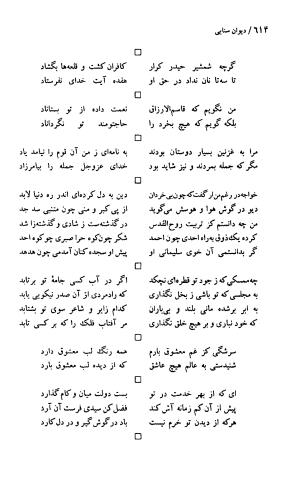 ۶۱۴ / دیوان سنایی
گرچه شمشیر حیدر کرار کافران کشت و قلعه‌ها بگشاد
تا سه‌تا نان نداد در حق او هفده آیت خدای نفرستاد
من نگویم که قاسم‌الارزاق نعمت داده از تو بستاناد
بلکه گویم که هیچ بخرد را حاجتومند تو نگرداناد
مرا به غزنین بسیار دوستان بودند به نامه‌ای ز من آن قوم را نیامد یاد
مگر که جمله بمردند و نیز شاید بود خدای عزوجل جمله را بیامرزاد
خواجه در رغم من ار گفت که چون بی‌خردان دین به دل کرده‌ای اندر ره دنیا لابد
دیو در گوش هوا و هوسش می‌گوید از پی کبر و منی چون متنبی سد جد
کرده یک ذوق به راه احدی چون احمد شکر چون کوه حرا صبری چو کوه احد
گر بدانستمی آن خوی سلیمانی او پیش او سجده کنان آمدمی چون هدهد
چه ممسکی که ز جود تو قطره‌ای نچکد اگر در آب کسی جامهٔ تو برتابد
به مجلسی که تو باشی ز بخل نگذاری که رادمردی از آن صدر نیکویی یابد
به ابر برشده مانی بلند و بی‌باران کدام زایر و شاعر سوی تو بشتابد
که خود نباری و بر هیچ خلق نگذاری مر آفتاب فلک را که بر کسی تابد
سرشگی کز غم معشوق بارم همه رنگ لب معشوق دارد
شنیدستی به عالم هیچ عاشق که از دیده لب معشوق بارد
ای که از بهر خدمت در تو بست دولت میان و کام گذارد
پیش از آن کم زمانه آش کند فضل کن سیدی فرست آن آرد
هرکه از دیدن تو خرم نیست باد در گوش گیر و در دل کارد